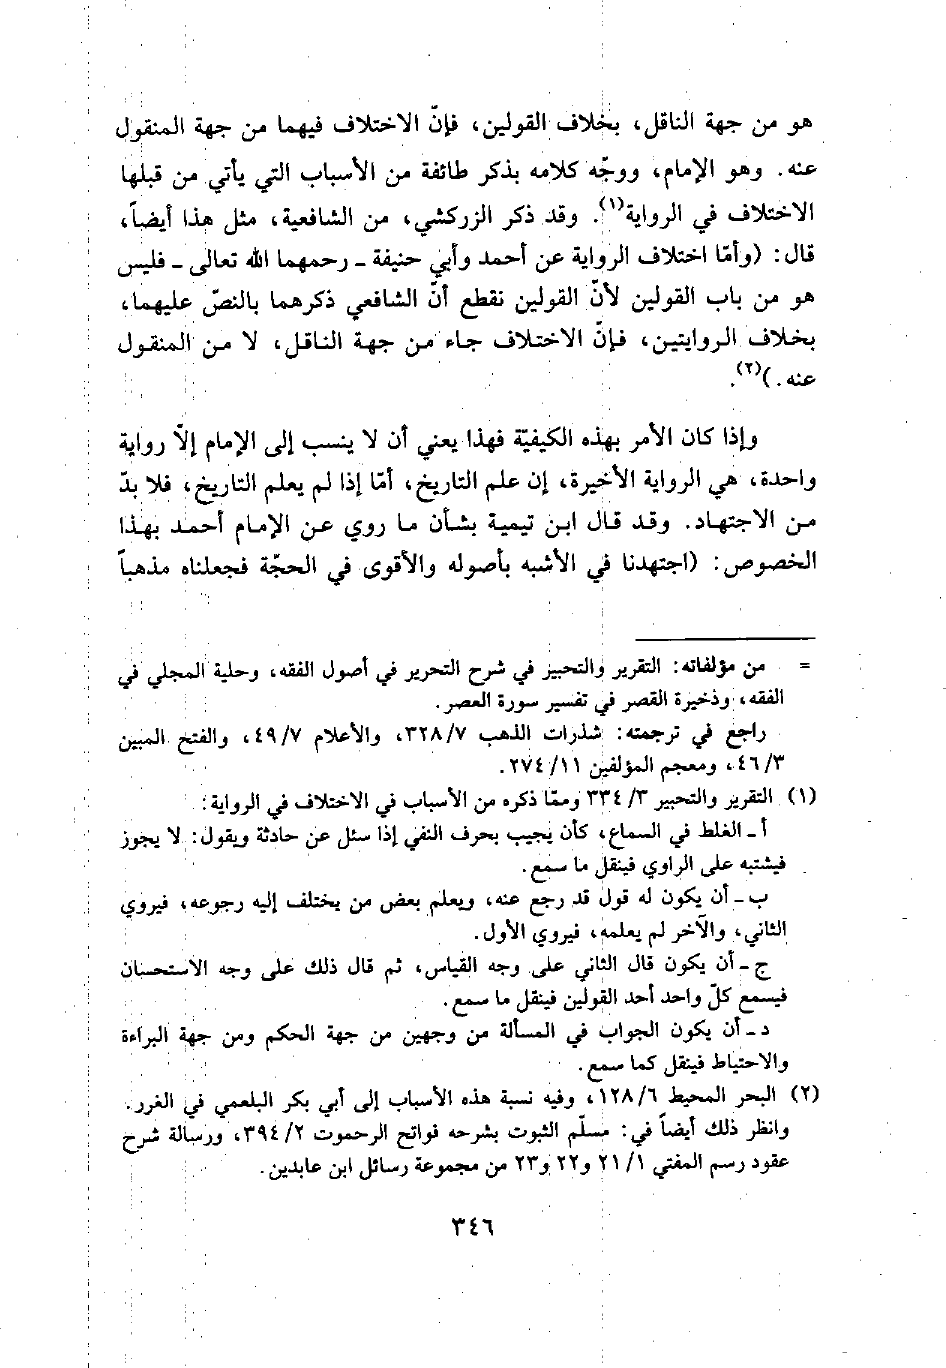 هو من جهة الناقل، بخلاف القولين، فإنّ الاختلاف فيهما من جهة المنقول
عنه. وهو الإمام، ووجّه كلامه بذكر طائفة من الأسباب التي يأتي من قبلها
الاختلاف في الرواية(١). وقد ذكر الزركشي، من الشافعية، مثل هذا أيضاً،
قال: (وأمّا اختلاف الرواية عن أحمد وأبي حنيفة ــ رحمهما الله تعالى ــ فليس
هو من باب القولين لأنّ القولين نقطع أنّ الشافعي ذكرهما بالنصّ عليهما،
بخلاف الروايتين، فإنّ الاختلاف جاء من جهة الناقل، لا من المنقول
عنه.)(٢).
وإذا كان الأمر بهذه الكيفيّة فهذا يعني أن لا ينسب إلى الإمام إلّا رواية
واحدة، هي الرواية الأخيرة، إن علم التاريخ، أمّا إذا لم يعلم التاريخ، فلا بدّ
من الاجتهاد. وقد قال ابن تيمية بشأن ما روي عن الإمام أحمد بهذا
الخصوص: (اجتهدنا في الأشبه بأصوله والأقوى في الحجّة فجعلناه مذهباً
= من مؤلفاته: التقرير والتحبير في شرح التحرير في أصول الفقه، وحلية المجلي في
الفقه، وذخيرة القصر في تفسير سورة العصر.
راجع في ترجمته: شذرات الذهب ٣٢٨/٧، والأعلام ٤٩/٧، والفتح المبين
٤٦/٣، ومعجم المؤلفين ٢٧٤/١١.
(١) التقرير والتحبير ٣٣٤/٣ وممّا ذكره من الأسباب في الاختلاف في الرواية:
أ ــ الغلط في السماع، كأن يجيب بحرف النفي إذا سئل عن حادثة ويقول: لا يجوز
فيشتبه على الراوي فينقل ما سمع.
ب ــ أن يكون له قول قد رجع عنه، ويعلم بعض من يختلف إليه رجوعه، فيروي
الثاني، والآخر لم يعلمه، فيروي الأول.
ج ــ أن يكون قال الثاني على وجه القياس، ثم قال ذلك على وجه الاستحسان
فيسمع كلّ واحد أحد القولين فينقل ما سمع.
د ــ أن يكون الجواب في المسألة من وجهين من جهة الحكم ومن جهة البراءة
والاحتياط فينقل كما سمع.
(٢) البحر المحيط ١٢٨/٦، وفيه نسبة هذه الأسباب إلى أبي بكر البلعمي في الغرر.
وانظر ذلك أيضاً في: مسلّم الثبوت بشرحه فواتح الرحموت ٣٩٤/٢، ورسالة شرح
عقود رسم المفتي ٢١/١ و٢٢ و٢٣ من مجموعة رسائل ابن عابدين.
٣٤٦